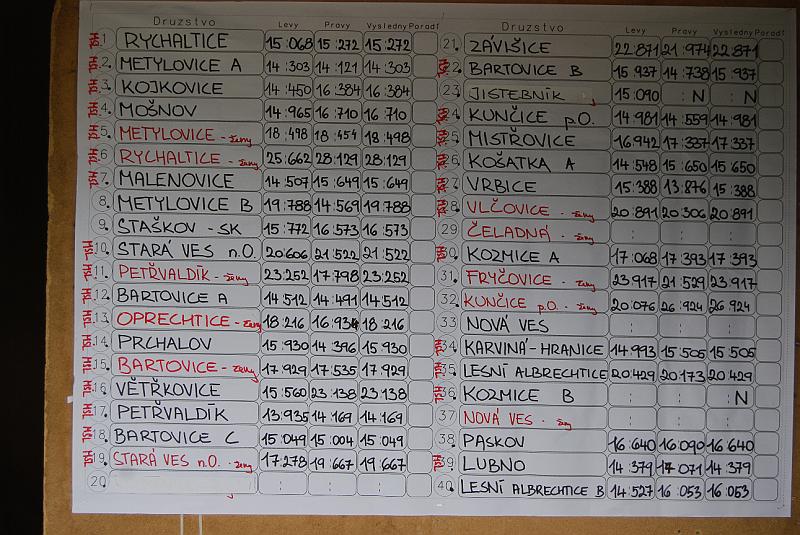 Druzstvo Levy Pravy Vysledny Poradi
HSL 1. RYCHALTICE 15:068 15:272 15:272
HSL 2. METYLOVICE A 14:303 14:121 14:303
HSL 3. KOJKOVICE 14:450 16:384 16:384
HSL 4. MOŠNOV 14:965 16:710 16:710
HSL 5. METYLOVICE - ženy 18:498 18:454 18:498
HSL 6. RYCHALTICE - ženy 25:662 28:129 28:129
HSL 7. MALENOVICE 14:507 15:649 15:649
8. METYLOVICE B 19:788 14:569 19:788
9. STAŠKOV - SK 15:772 16:573 16:573
HSL 10. STARÁ VES n.O. 20:606 21:522 21:522
HSL 11. PETŘVALDÍK - ženy 23:252 17:798 23:252
HSL 12. BARTOVICE A 14:512 14:491 14:512
HSL 13. OPRECHTICE - ženy 18:216 16:934 18:216
HSL 14. PRCHALOV 15:930 14:396 15:930
HSL 15. BARTOVICE - ženy 17:929 17:535 17:929
HSL 16. VĚTŘKOVICE 15:560 23:138 23:138
HSL 17. PETŘVALDÍK 13:935 14:169 14:169
HSL 18. BARTOVICE C 15:049 15:004 15:049
HSL 19. STARÁ VES n.O. - ženy 17:278 19:667 19:667
20. : : :
Druzstvo Levy Pravy Vysledny Poradi
21. ZÁVIŠICE 22:871 21:974 22:871
HSL 22. BARTOVICE B 15:937 14:738 15:937
23. JISTEBNÍK 15:090 :N :N
HSL 24. KUNČICE p.O. 14:981 14:559 14:981
HSL 25. MISTŘOVICE 16:942 17:337 17:337
HSL 26. KOŠATKA A 14:548 15:650 15:650
HSL 27. VRBICE 15:388 13:876 15:388
HSL 28. VLČOVICE - ženy 20:891 20:306 20:891
29. ČELADNÁ - ženy : : :
HSL 30. KOZMICE A 17:068 17:393 17:393
31. FRYČOVICE - ženy 23:917 21:529 23:917
32. KUNČICE p.O. - ženy 20:076 26:924 26:924
33 NOVÁ VES : : :
HSL 34. KARVINÁ-HRANICE 14:993 15:505 15:505
HSL 35. LESNÍ ALBRECHTICE 20:429 20:173 20:429
HSL 36. KOZMICE B : : N
37. NOVÁ VES - ženy : : :
38. PASKOV 16:640 16:090 16:640
HSL 39. LUBNO 14:379 17:071 14:379
40. LESNÍ ALBRECHTICE B 14:527 16:053 16:053